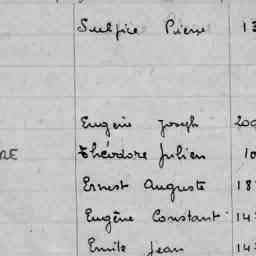 Sulpice Pierre 13
Eugène Joseph 200
RE Théodore Julien 10
Ernest Auguste 18
Eugène Constant 14
Emile Jean 14